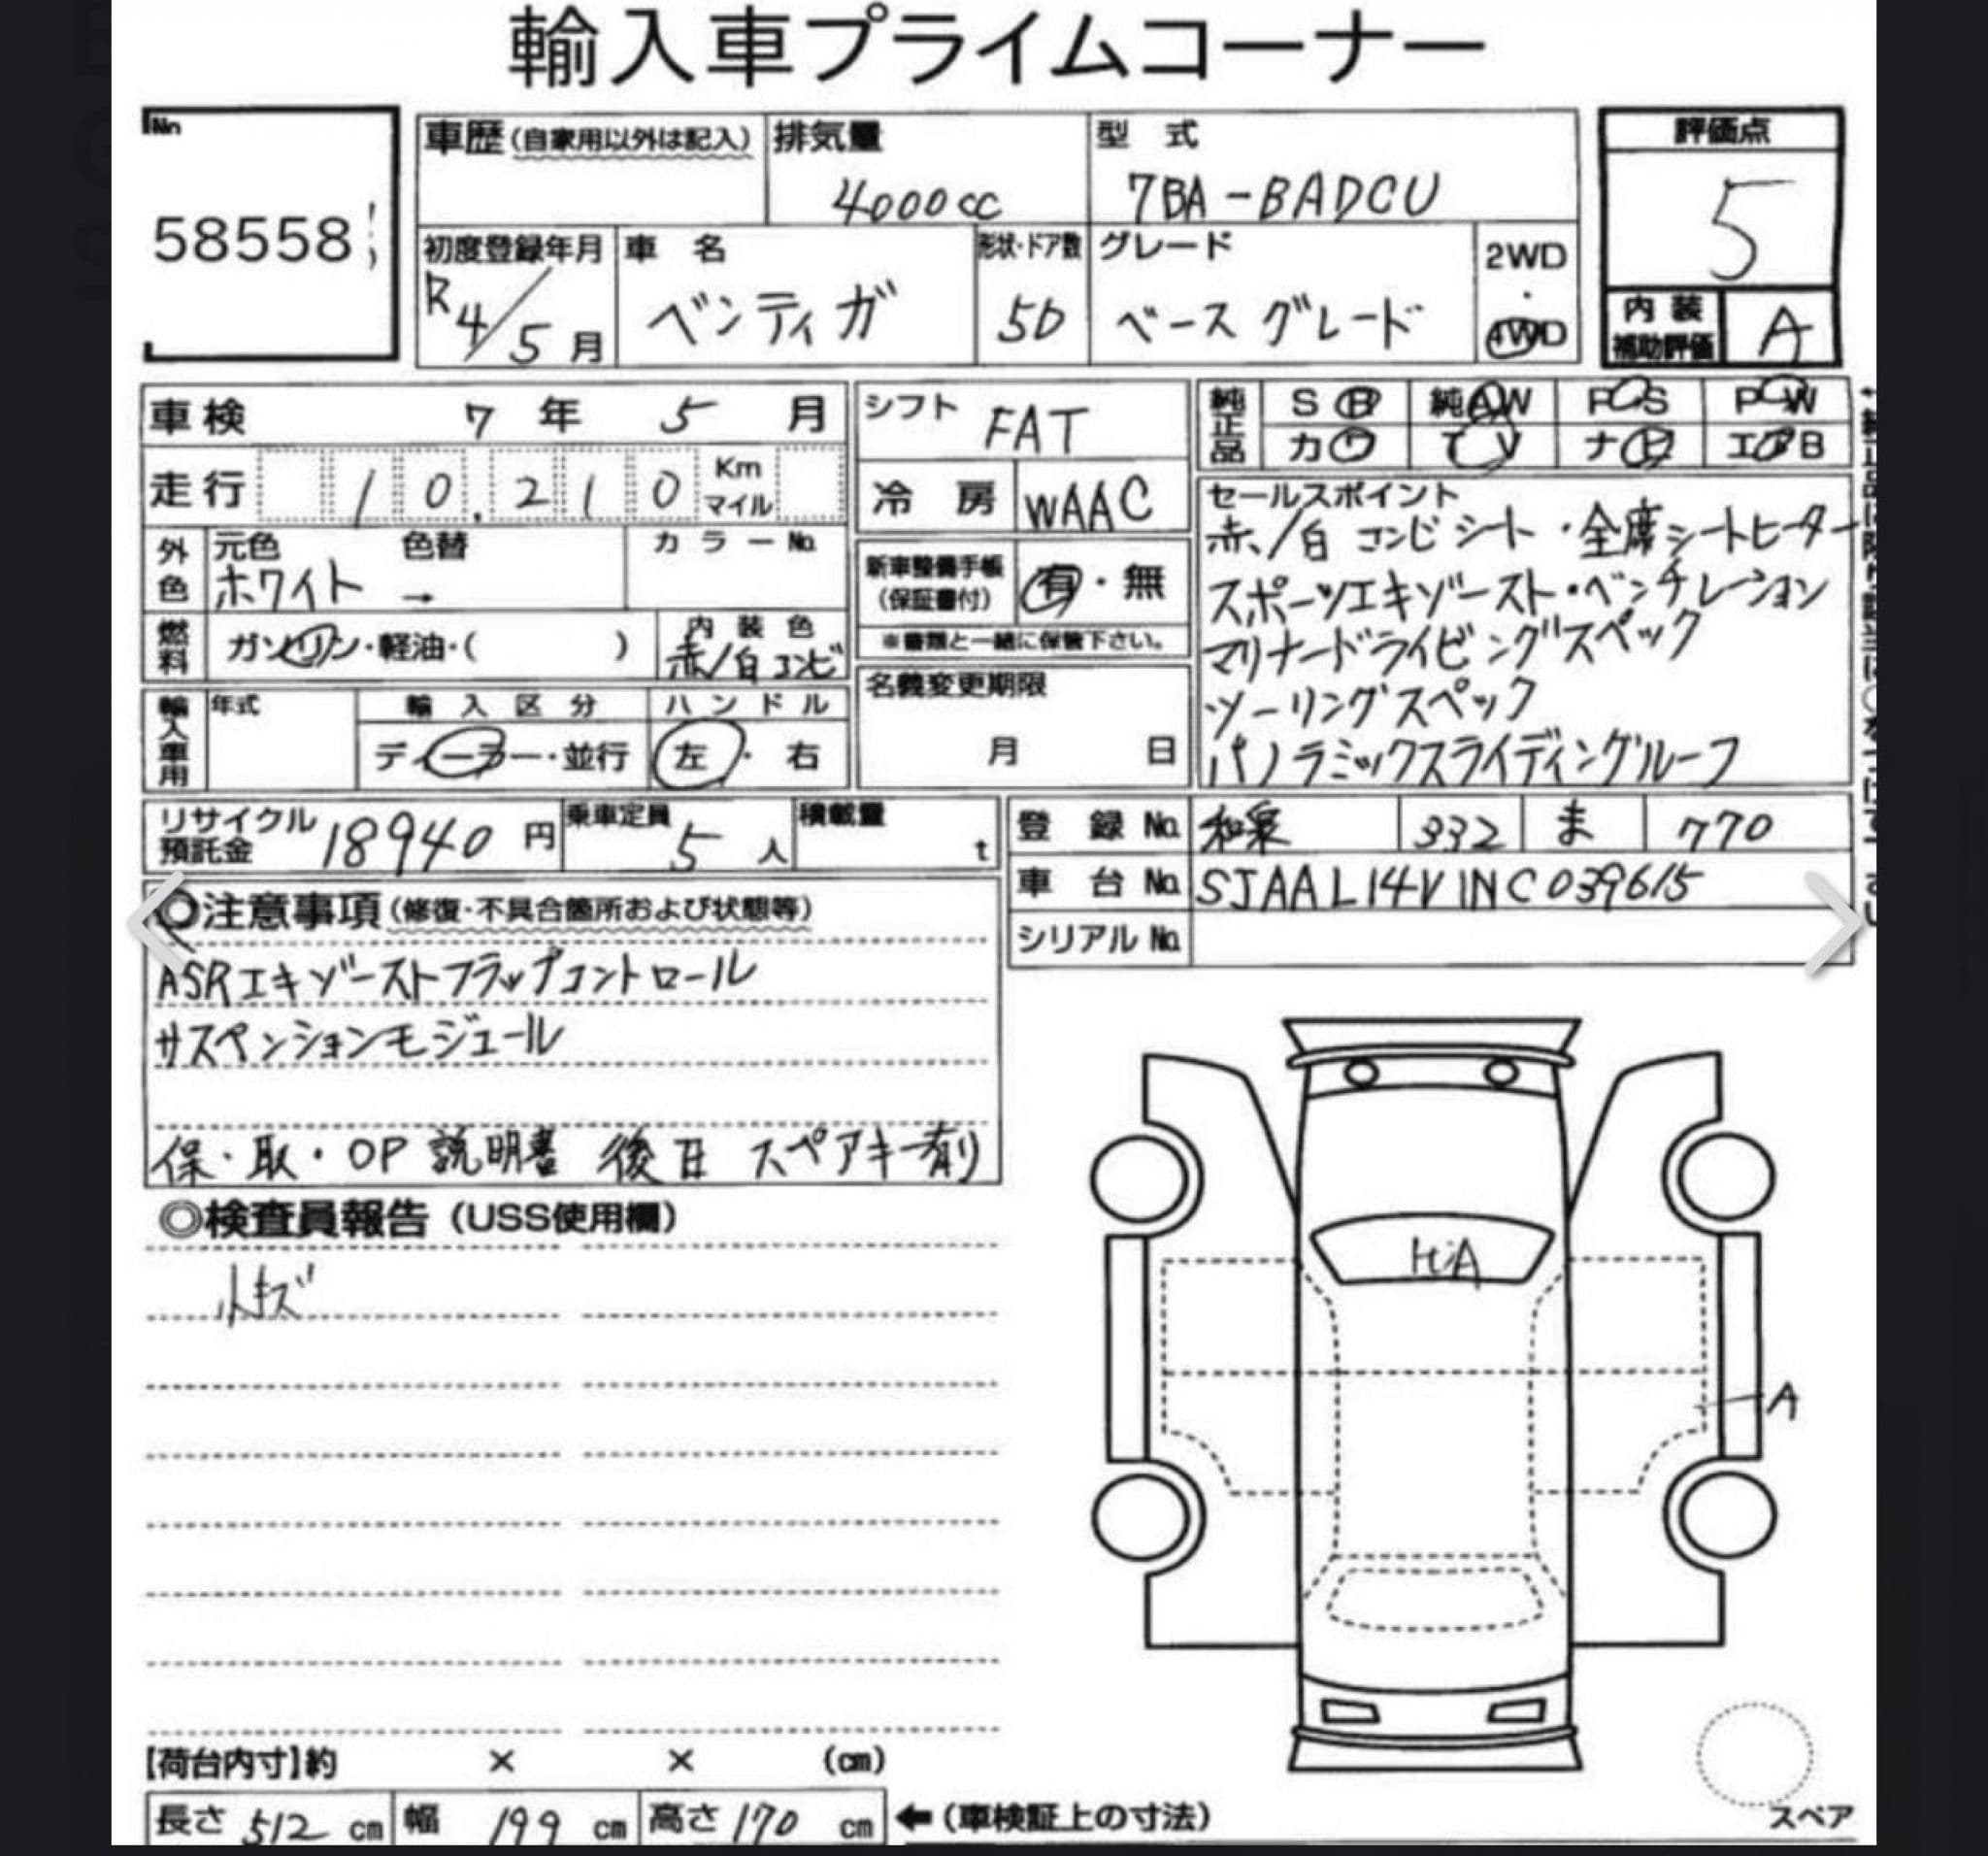 輸入車プライムコーナー
No.
58558
車歴(自家用以外は記入)
排気量
4000cc
型 式
7BA-BADCU
評価点
5
初度登録年月
R4/5月
車 名
ベンティガ
形状・ドア数
5D
グレード
ベースグレード
2WD
・
4WD
内装
補助評価
A
車検 7年 5月
シフト FAT
純正品
SR 純AW PS PW
カワ TV ナビ エアB
走行 10,210 Km
マイル
冷 房 WAAC
外色
元色 色替 カラーNo.
ホワイト →
新車整備手帳
(保証書付)
有・無
※書類と一緒に保管下さい。
セールスポイント
赤/白 コンビシート・全席シートヒーター
スポーツエキゾースト・ベンチレーション
マリナードライビングスペック
ツーリングスペック
パノラミックスライディングルーフ
燃料
ガソリン・軽油・( )
内装色
赤/白コンビ
名義変更期限
月 日
輸入車用
年式
輸入区分
ディーラー・並行
ハンドル
左・右
リサイクル
預託金
18940円
乗車定員
5人
積載量
t
登録No. 和泉 332 ま 770
車台No. SJAAL14V1NC039615
シリアルNo.
◎注意事項(修復・不具合箇所および状態等)
ASRエキゾーストフラップコントロール
サスペンションモジュール
保・取・OP 説明書 後日 スペアキー有り
◎検査員報告(USS使用欄)
小キズ
A
【荷台内寸】約 × × (cm)
長さ 512 cm 幅 199 cm 高さ 170 cm ←(車検証上の寸法)
スペア